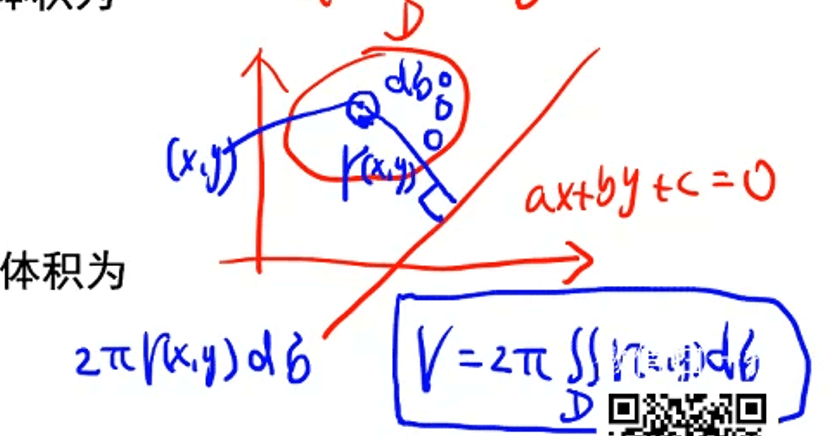 体积为
D
dσ
(x,y)
r(x,y)
ax+by+c=0
体积为
2πr(x,y)dσ
V=2π∬
D
dσ